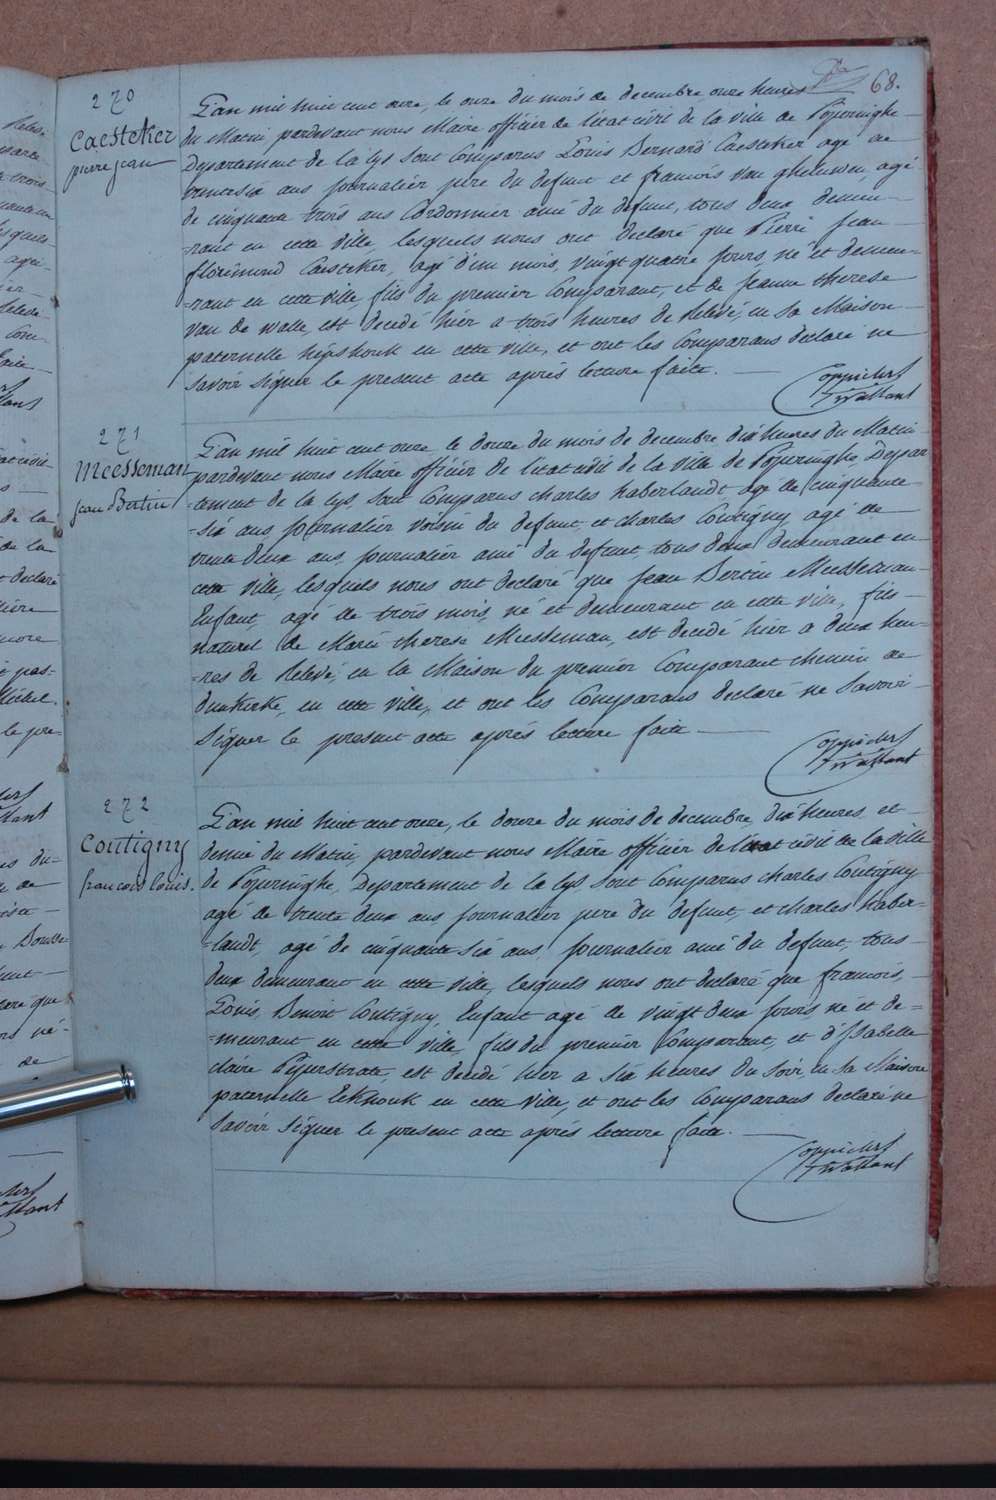 68.
270
Caesteker
pierre jean
L'an mil huit cent onze, le onze du mois de decembre, onze heures
du Matin pardevant nous Maire officier de l'etat civil de la ville de Poperinghe
Departement de la lys sont Comparus Louis Bernard Caesteker agé de
trentesix ans Journalier pere du defunt et francois van gheluwen, agé
de cinquante trois ans Cordonnier ami du defunt, tous deux demeu-
rant en cette ville, lesquels nous ont declaré que Pierre Jean
florimond Caesteker, agé d'un mois, vingt quatre jours, né et demeu-
-rant en cette ville, fils du premier Comparant, et de Jeanne therese
van de walle, est decedé hier a trois heures de Relevé, en sa Maison
paternelle hipshouk en cette ville, et ont les Comparans declaré ne
savoir signer le present acte aprés lecture faite.
Coppieters
t'wallant
271
Meesseman
jean Bertin
L'an mil huit cent onze le douze du mois de decembre dix heures du Matin
pardevant nous Maire officier de l'etat civil de la ville de Poperinghe, Depar
-tement de la lys, sont Comparus charles haberlandt agé de cinquante
-six ans journalier voisin du defunt et charles Coutigny agé de
trente deux ans, journalier ami du defunt tous deux demeurant en
cette ville, lesquels nous ont declaré que jean Bertin Meesseman
Enfant, agé de trois mois, né et demeurant en cette ville, fils
naturel de Marie therese Meesseman, est decedé hier a deux heu-
-res de Relevé, en la Maison du premier Comparant chemin de
dunkerke, en cette ville, et ont les Comparans declaré ne savoir
signer le present acte aprés lecture faite
Coppieters
t'wallant
272
Coutigny
francois louis.
L'an mil huit cent onze, le douze du mois de decembre, dix heures et
demie du Matin, pardevant nous Maire officier de l'etat civil de la ville
de Poperinghe, Departement de la lys sont Comparus charles Coutigny
agé de trente deux ans, journalier pere du defunt, et charles haber-
-landt, agé de cinquante six ans, journalier ami du defunt, tous
deux demeurant en cette ville, lesquels nous ont declaré que francois,
Louis, Benoit Coutigny, Enfant agé de vingt deux jours né et de-
-meurant en cette ville, fils du premier Comparant, et d'Isabelle
claire Pyperstrate, est decedé hier a six heures du soir, en sa Maison
paternelle Ekhouk en cette ville, et ont les Comparans declaré ne
savoir signer le present acte aprés lecture faite.
Coppieters
t'wallant